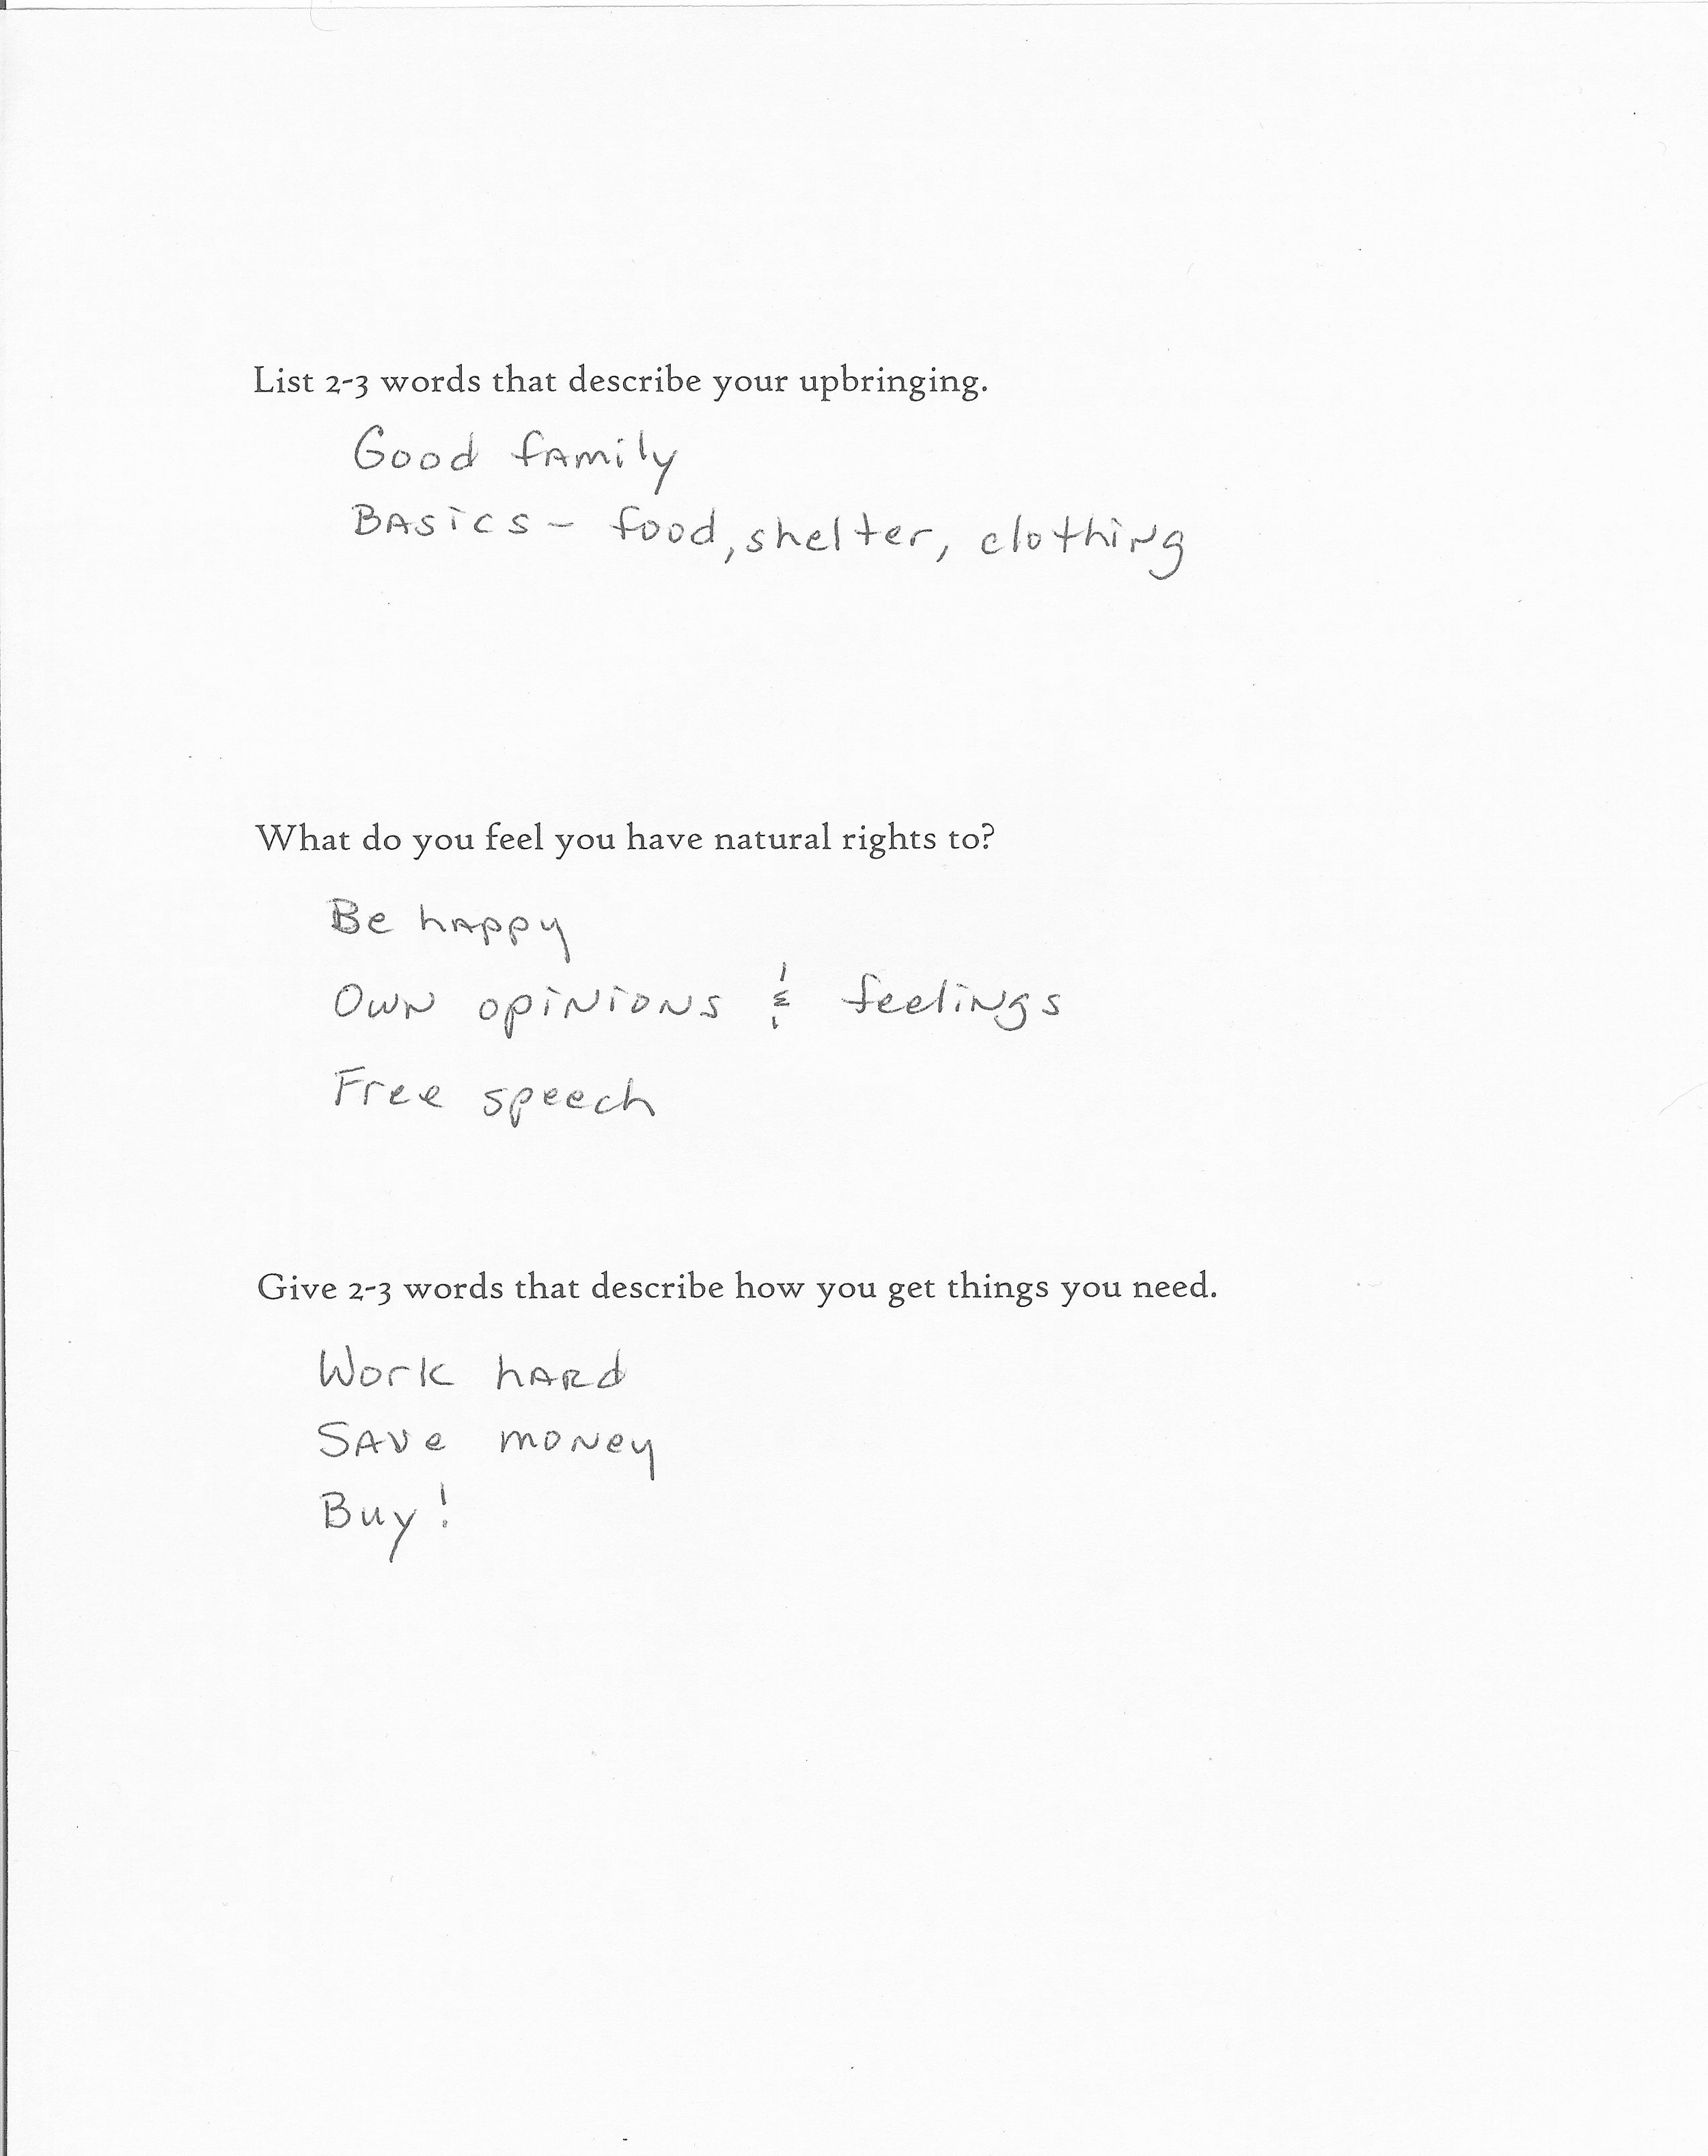 List 2-3 words that describe your upbringing.
Good family
Basics - food, shelter, clothing
What do you feel you have natural rights to?
Be happy
Own opinions & feelings
Free speech
Give 2-3 words that describe how you get things you need.
Work hard
Save money
Buy!